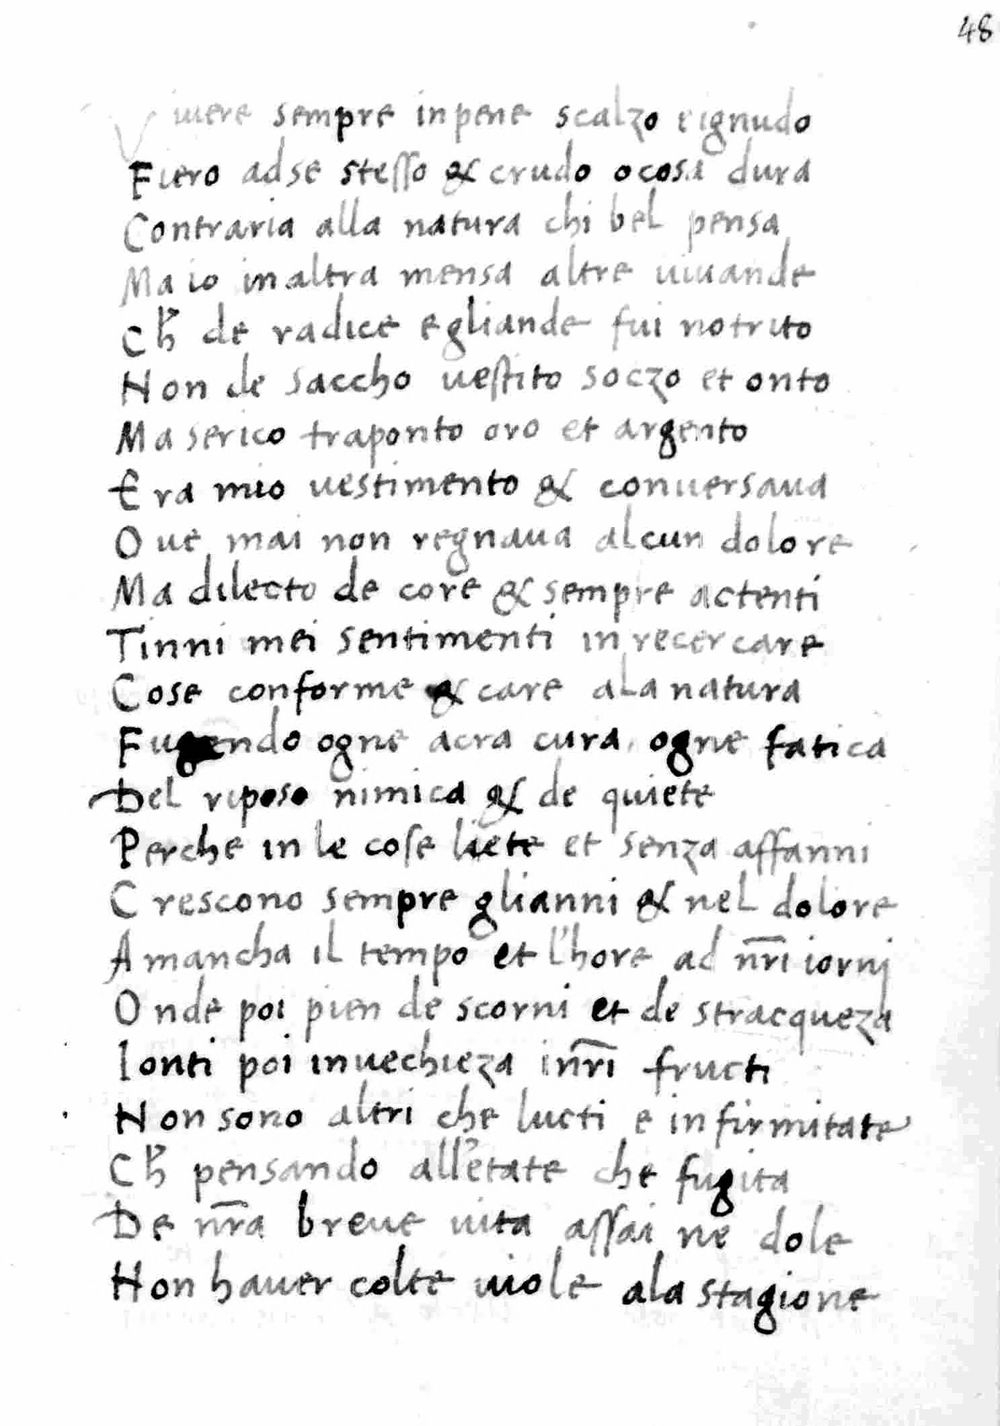 48
Viuere sempre in pene scalzo e ignudo
Fiero ad se stesso & crudo o cosa dura
Contraria alla natura chi bel pensa
Ma io in altra mensa altre uiuande
Ch̄ de radice e gliande fui notrito
Non de saccho uestito soczo et onto
Ma serico traponto oro et argento
Era mio uestimento & conuersaua
Oue mai non regnaua alcun dolore
Ma dilecto de core & sempre actenti
Tinni mei sentimenti in recercare
Cose conforme & care a la natura
Fugendo ogne acra cura, ogne fatica
Del riposo nimica & de quiete
Perche in le cose liete et senza affanni
Crescono sempre gli anni & nel dolore
A mancha il tempo et l'hore ad nr̄i iornj
Onde poi pien de scorni et de stracqueza
Ionti poi in uechieza i nr̄i fructi
Non sono altri che lucti e infirmitate
Ch̄ pensando all'etate che fugita
De nr̄a breue uita assai ne dole
Non hauer colte uiole a la stagione